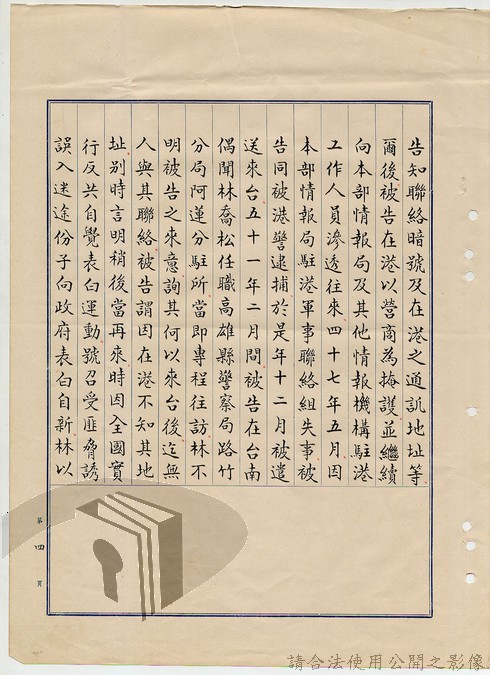 告知聯絡暗號及在港之通訊地址等
爾後被告在港以營商為掩護並繼續
向本部情報局及其他情報機構駐港
工作人員滲透往來四十七年五月因
本部情報局駐港軍事聯絡組失事被
告同被港警逮捕於是年十二月被遣
送來台五十一年二月間被告在台南
偶聞林喬松任職高雄縣警察局路竹
分局阿蓮分駐所當即專程往訪林不
明被告之來意詢其何以來台後迄無
人與其聯絡被告謂因在港不知其地
址別時言明稍後當再來時因入全國實
行反共自覺表白運動號召受匪脅誘
誤入迷途份子向政府表白自新林以
第四頁
請合法使用公開之影像